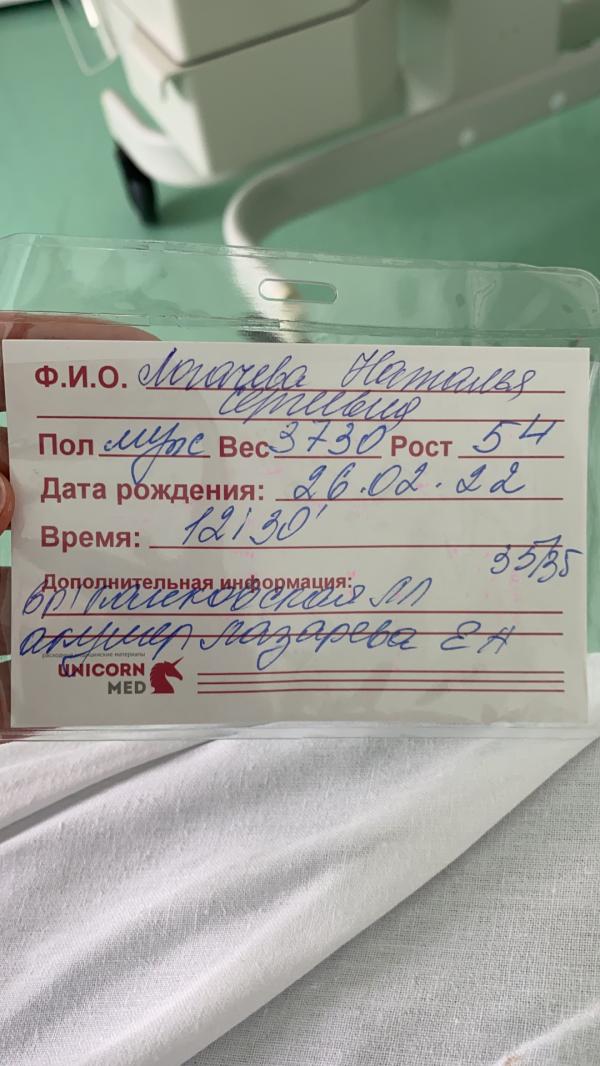 Ф.И.О. Логачева Наталья
Сергеевна
Пол муж Вес 3730 Рост 54
Дата рождения: 26.02.22
Время: 12:30'
35/35
Дополнительная информация:
вр:
акушер Лазарева Е А
расходные медицинские материалы
UNICORN
MED